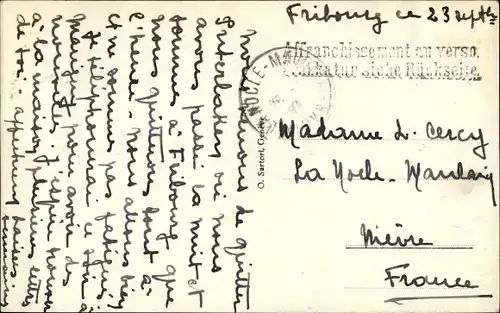 Fribourg ce 23 sept
Affranchissement au verso.
Frankatur siehe Rückseite
NOCLE-MAULAIX
Madame L. Cercy
La Nocle-Maulaix
Nièvre
France
O. Sartori, Genève
Nous venons de quitter
Interlaken où nous
avons passé la nuit et
sommes à Fribourg que
nous quittons tout à
l'heure. Nous allons bien
et sommes pas fatigués.
Je téléphonerai ce soir à
pour avoir des
nouvelles. J'espère trouver
à la maison plusieurs lettres
de toi. affectueux baisers